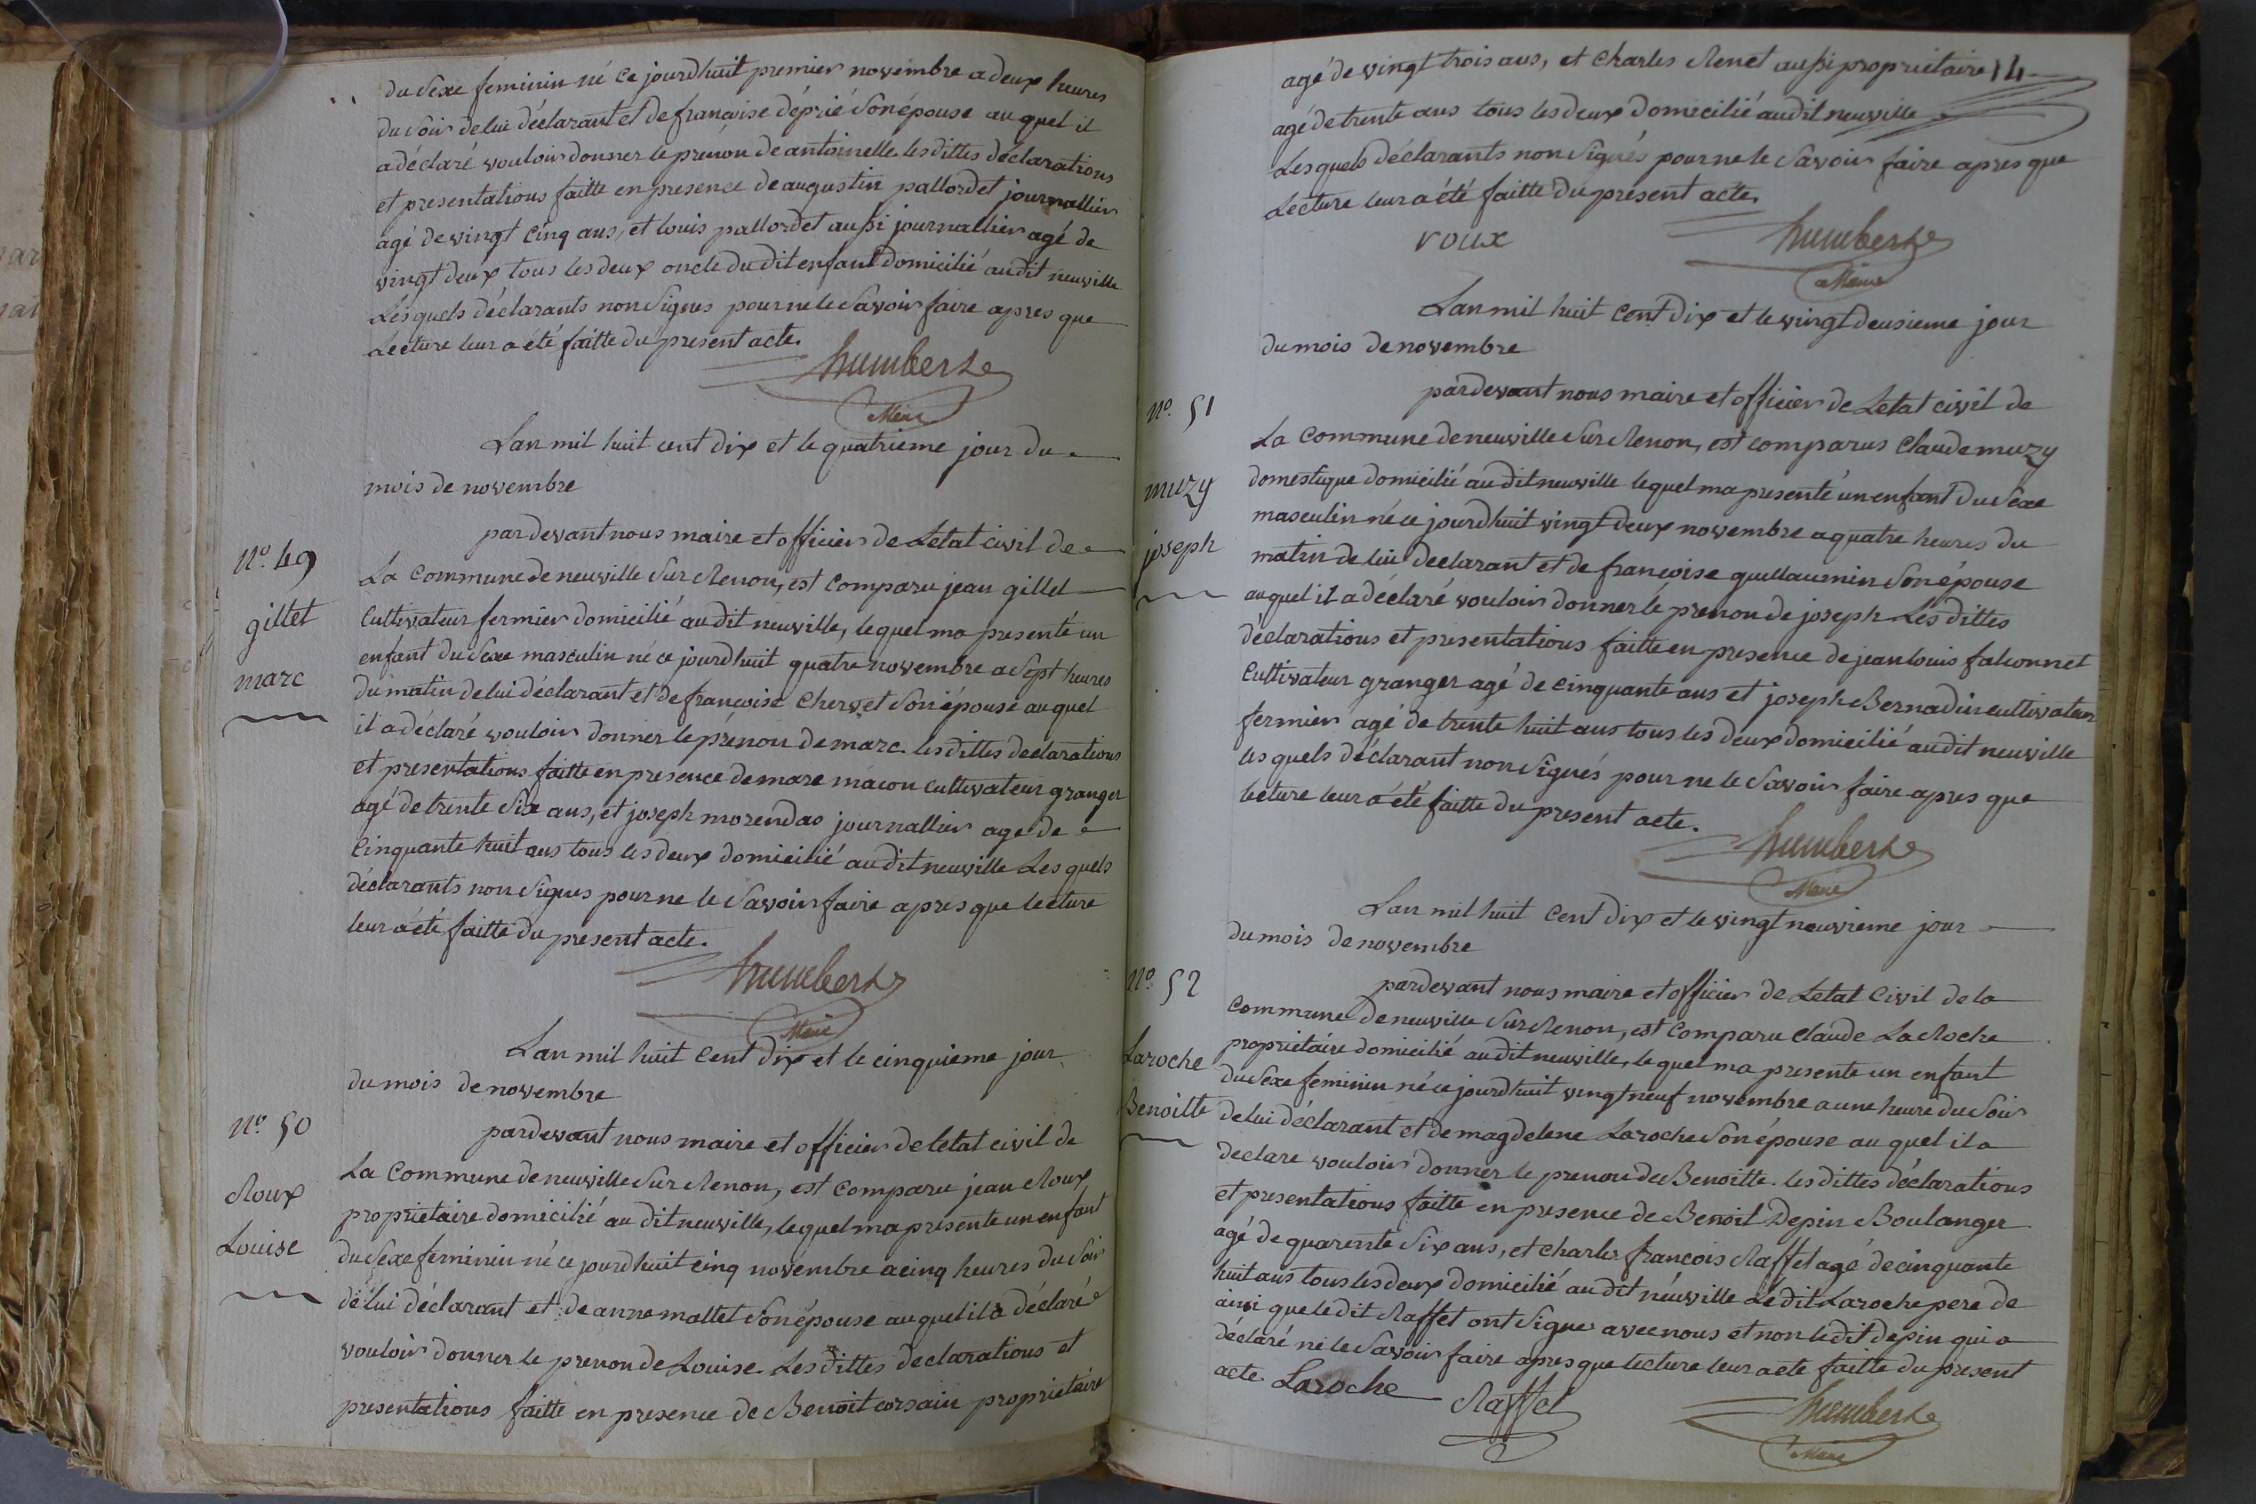 du sexe feminin né ce jourdhuit premier novembre a deux heures
du soir de lui déclarant et de françoise déprié son épouse auquel il
a déclaré vouloir donner le prénon de antoinette les dittes déclarations
et presentations faitte en presence de augustin pallordet journallier
agé de vingt cinq ans, et louis pallordet aussi journallier agé de
vingt deux tous les deux oncle du dit enfant domicilié audit neuville
Lesquels déclarants non signes pour ne le savoir faire apres que
Lecture leur a été faitte du present acte.
humbert
Maire
Lan mil huit cent dix et le quatrieme jour du
mois de novembre
pardevant nous maire et officier de Letat civil de
N.º 49
gillet
marc
La commune de neuville sur Renon, est comparu jean gillet
Cultivateur fermier domicilié audit neuville, lequel ma presenté un
enfant du sexe masculin né ce jourdhuit quatre novembre a sept heures
du matin de lui déclarant et de françoise Chervet son épouse auquel
il a déclaré vouloir donner le prénon de marc. les dittes declarations
et presentations faitte en presence de marc macon cultivateur granger
agé de trente six ans, et joseph morendas journallier age de
Cinquante huit ans tous les deux domicilié audit neuville Lesquels
déclarants non signes pour ne le savoir faire apres que lecture
leur a été faitte du present acte.
humbert
Maire
Lan mil huit cent dix et le cinquieme jour
du mois de novembre
N.º 50
Roux
Louise
pardevant nous maire et officier de letat civil de
La Commune de neuville sur Renon, est comparu jean Roux
proprietaire domicilié au dit neuville, lequel ma presente un enfant
du sexe feminin né ce jourdhuit cinq novembre a cinq heures du soir
de lui déclarant et de anne mallet son épouse auquel il a déclaré
vouloir donner le prenon de Louise. Les dittes declarations et
presentations faitte en presence de Benoit corsain proprietaire
14
agé de vingt trois ans, et Charles Renet aussi proprietaire
agé de trente ans tous les deux domicilié audit neuville
Lesquels déclarants non signés pour ne le savoir faire apres que
Lecture leur a été faitte du present acte.
roux
humbert
Maire
Lan mil huit cent dix et le vingt deusieme jour
du mois de novembre
N.º 51
muzy
joseph
pardevant nous maire et officier de Letat civil de
La Commune de neuville sur Renon, est comparus Claude muzy
domestique domicilié au dit neuville lequel ma presenté un enfant du sexe
masculin né ce jourdhuit vingt deux novembre a quatre heures du
matin de lui declarant et de francoise guillaumin son épouse
auquel il a déclaré vouloir donner le prenon de joseph Les dittes
déclarations et presentations faitte en presence de jean louis falconnet
Cultivateur granger agé de cinquante ans et joseph Bernadin cultivateur
fermier agé de trente huit ans tous les deux domicilié audit neuville
lesquels declarant non signés pour ne le savoir faire apres que
lecture leur a été faitte du present acte.
humbert
Maire
Lan mil huit cent dix et le vingt neuvieme jour
du mois de novembre
N.º 52
Laroche
Benoitte
pardevant nous maire et officier de Letat civil de la
Commune de neuville sur Renon, est comparu Claude LaRoche
proprietaire domicilié au dit neuville, lequel ma presente un enfant
du sexe feminin né ce jourdhuit vingt neuf novembre a une heure du soir
de lui déclarant et de magdelene Laroche son épouse auquel il a
declare vouloir donner le prenon de Benoitte. les dittes déclarations
et presentations faitte en presence de Benoit Depin Boulanger
agé de quarente six ans, et charles francois Raffet agé de cinquante
huit ans tous les deux domicilié au dit neuville Ledit Laroche pere de
ainsi que ledit Raffet ont signes avec nous et non ledit depin qui a
déclaré ne le savoir faire apres que lecture leur a ete faitte du present
acte Laroche
Raffet
humbert
Maire